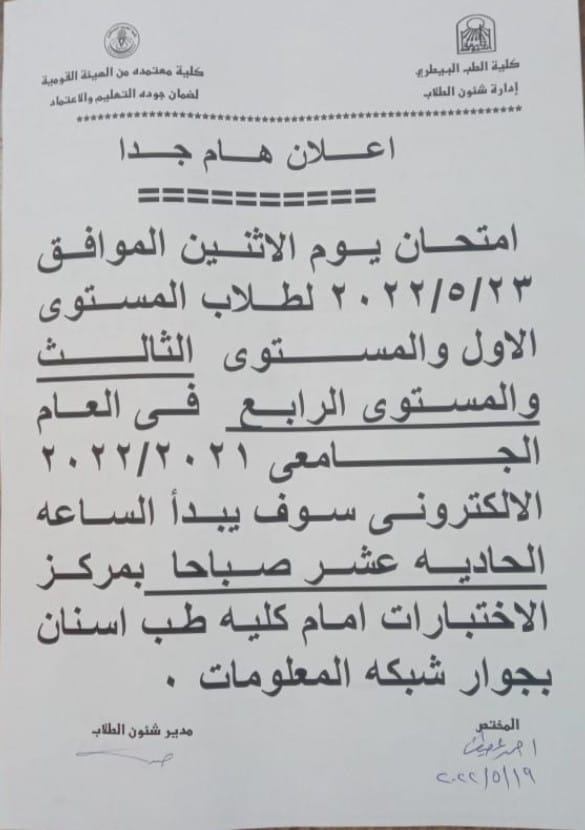 كلية الطب البيطري
إدارة شئون الطلاب
كلية معتمده من الهيئة القومية
لضمان جوده التعليم والاعتماد
اعلان هام جدا
امتحان يوم الاثنين الموافق
٢٠٢٢/٥/٢٣ لطلاب المستوى
الاول والمستوى الثالث
والمستوى الرابع فى العام
الجامعى ٢٠٢٢/٢٠٢١
الالكترونى سوف يبدأ الساعه
الحاديه عشر صباحا بمركز
الاختبارات امام كليه طب اسنان
بجوار شبكه المعلومات .
المختص
احمد
٢٠٢٢/٥/١٩
مدير شئون الطلاب